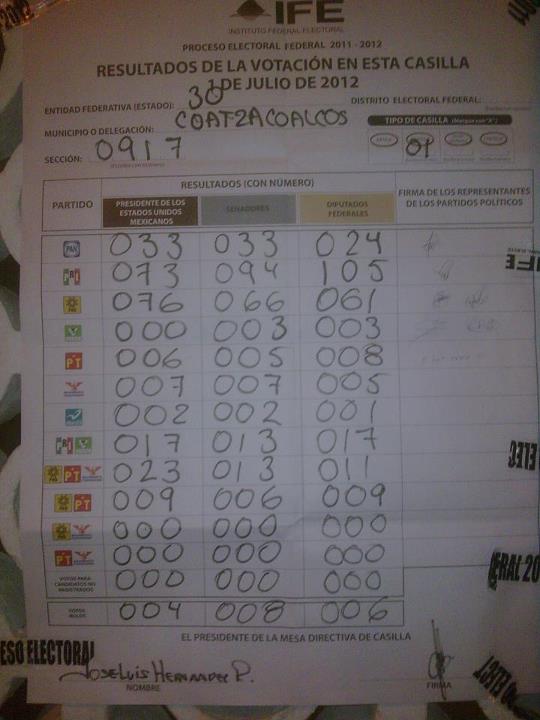 IFE
INSTITUTO FEDERAL ELECTORAL
PROCESO ELECTORAL FEDERAL 2011 - 2012
RESULTADOS DE LA VOTACIÓN EN ESTA CASILLA
1 DE JULIO DE 2012
ENTIDAD FEDERATIVA (ESTADO): 30 DISTRITO ELECTORAL FEDERAL:
MUNICIPIO O DELEGACIÓN: COATZACOALCOS
TIPO DE CASILLA (Marque con "X")
SECCIÓN: 0917 01
PARTIDO RESULTADOS (CON NÚMERO) FIRMA DE LOS REPRESENTANTES DE LOS PARTIDOS POLÍTICOS
PRESIDENTE DE LOS ESTADOS UNIDOS MEXICANOS SENADORES DIPUTADOS FEDERALES
PAN 033 033 024
PRI 073 094 105
PRD 076 066 061
000 003 003
PT 006 005 008
007 007 005
002 002 001
PRI 017 013 017
PRD PT 023 013 011
PRD PT 009 006 009
PRD 000 000 000
PT 000 000 000
VOTOS PARA CANDIDATOS NO REGISTRADOS 000 000 000
VOTOS NULOS 004 008 006
EL PRESIDENTE DE LA MESA DIRECTIVA DE CASILLA
JOSE LUIS HERNANDEZ P.
NOMBRE FIRMA
IFE
ELEC
ERAL 20
ESO ELECTORAL
ELECT